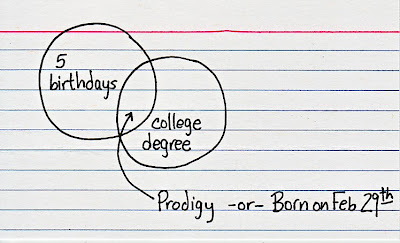 5
birthdays
college
degree
Prodigy -or- Born on Feb 29th